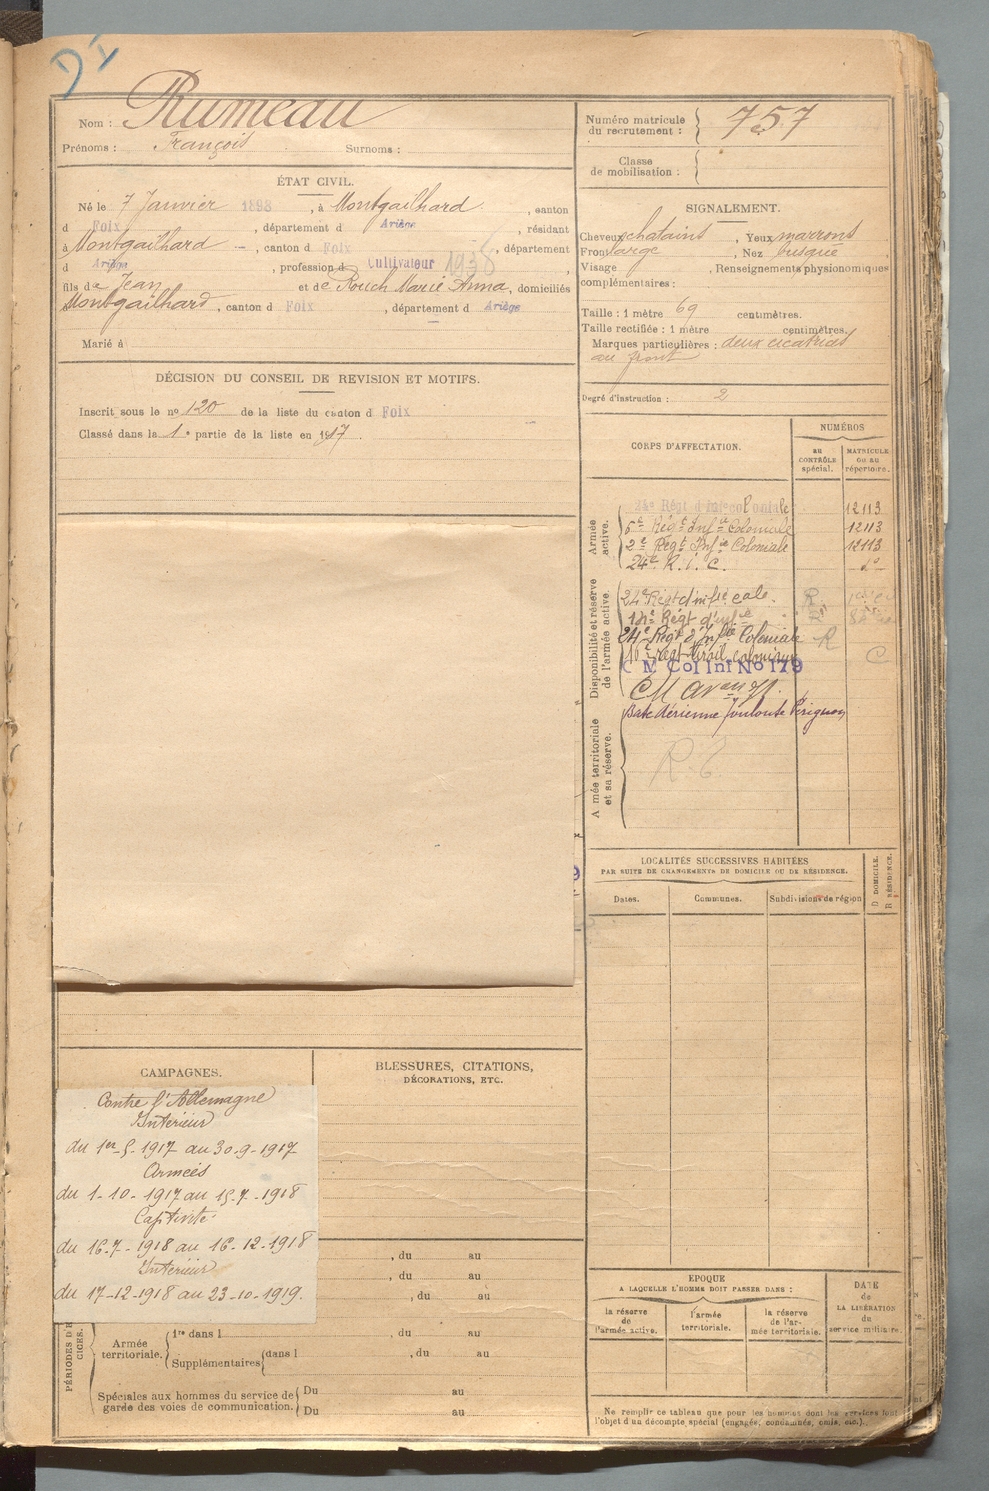 DI
Nom : Rumeau
Prénoms : François Surnoms :
ÉTAT CIVIL.
Né le 7 Janvier 1898, à Montgailhard, canton
d Foix, département d Ariège, résidant
à Montgailhard, canton d Foix, département
d Ariège, profession d Cultivateur
fils de Jean et de Rouch Marie Anna, domiciliés
Montgailhard, canton d Foix, département d Ariège
Marié à
DÉCISION DU CONSEIL DE REVISION ET MOTIFS.
Inscrit sous le no 120 de la liste du canton d Foix
Classé dans la 1e partie de la liste en 1917
CAMPAGNES.
Contre l'Allemagne
Intérieur
du 1er-5-1917 au 30-9-1917
Armées
du 1-10-1917 au 15-7-1918
Captivité
du 16-7-1918 au 16-12-1918
Intérieur
du 17-12-1918 au 23-10-1919.
BLESSURES, CITATIONS,
DÉCORATIONS, ETC.
, du au
, du au
, du au
PÉRIODES D
CICES.
Armée
territoriale.
1re dans l , du au
Supplémentaires dans l , du au
Spéciales aux hommes du service de
garde des voies de communication.
Du au
Du au
Numéro matricule
du recrutement :
757
Classe
de mobilisation :
SIGNALEMENT.
Cheveux chatains, Yeux marrons
Front large, Nez busqué,
Visage , Renseignements physionomiques
complémentaires :
Taille : 1 mètre 69 centimètres.
Taille rectifiée : 1 mètre centimètres.
Marques particulières : deux cicatrices
au front
Degré d'instruction : 2
CORPS D'AFFECTATION.
NUMÉROS
au
CONTRÔLE
spécial.
MATRICULE
ou au
répertoire.
Armée
active.
24e Régt d'Inf-coloniale 12113
5e Régt Infie Coloniale 12113
2e Régt Infie Coloniale 12113
24e R. I. C. do
Disponibilité et réserve
de l'armée active.
24e Régt d'infie cale. R
Régt d'infie
24e Régt d'Infie Coloniale R
C
C M Col Inf No 179
CM
Base Aérienne Toulouse Pérignon
Armée territoriale
et sa réserve.
LOCALITÉS SUCCESSIVES HABITÉES
PAR SUITE DE CHANGEMENTS DE DOMICILE OU DE RÉSIDENCE.
Dates. Communes. Subdivisions de région
D DOMICILE.
R RÉSIDENCE.
EPOQUE
A LAQUELLE L'HOMME DOIT PASSER DANS :
la réserve
de
l'armée active.
l'armée
territoriale.
la réserve
de l'ar-
mée territoriale.
DATE
de
LA LIBÉRATION
du
service militaire.
Ne remplir ce tableau que pour les hommes dont les services font
l'objet d'un décompte spécial (engagés, condamnés, omis, etc.).